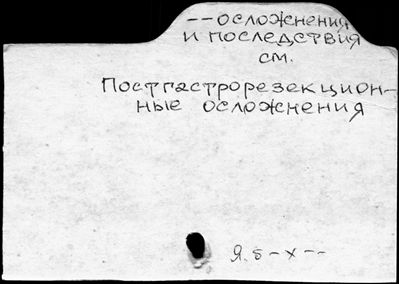 -- осложнения
и последствия
см.
Постгастрорезекцион-
ные осложнения
Я. б - х - -